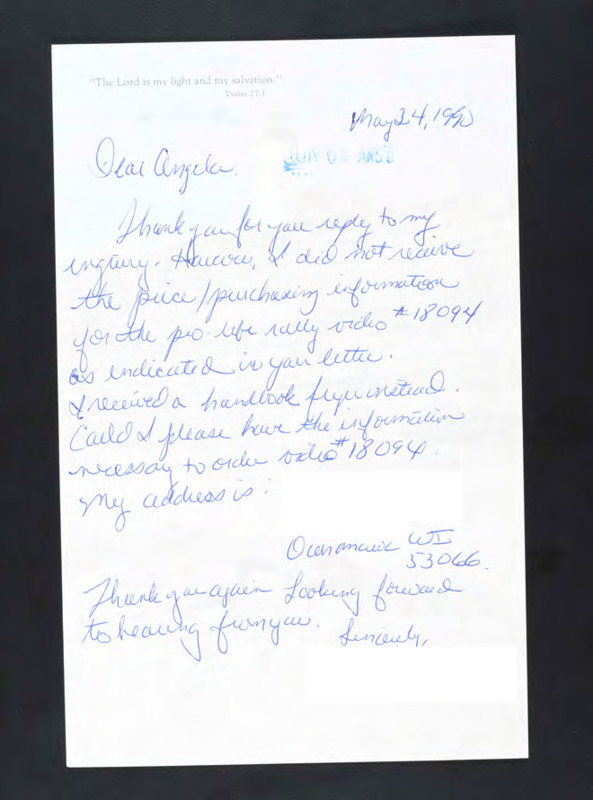 "The Lord is my light and my salvation."
Psalm 27:1
May 24, 1990
Dear Angela.
Thank you for you reply to my
inquiry. However, I did not receive
the price/purchasing information
for the pro-life rally video #18094
as indicated in your letter.
I received a handbook flyer instead.
Could I please have the information
necessary to order video #18094.
My address is:
Oconomowoc WI
53066.
Thank you again Looking forward
to hearing from you.
Sincerely,